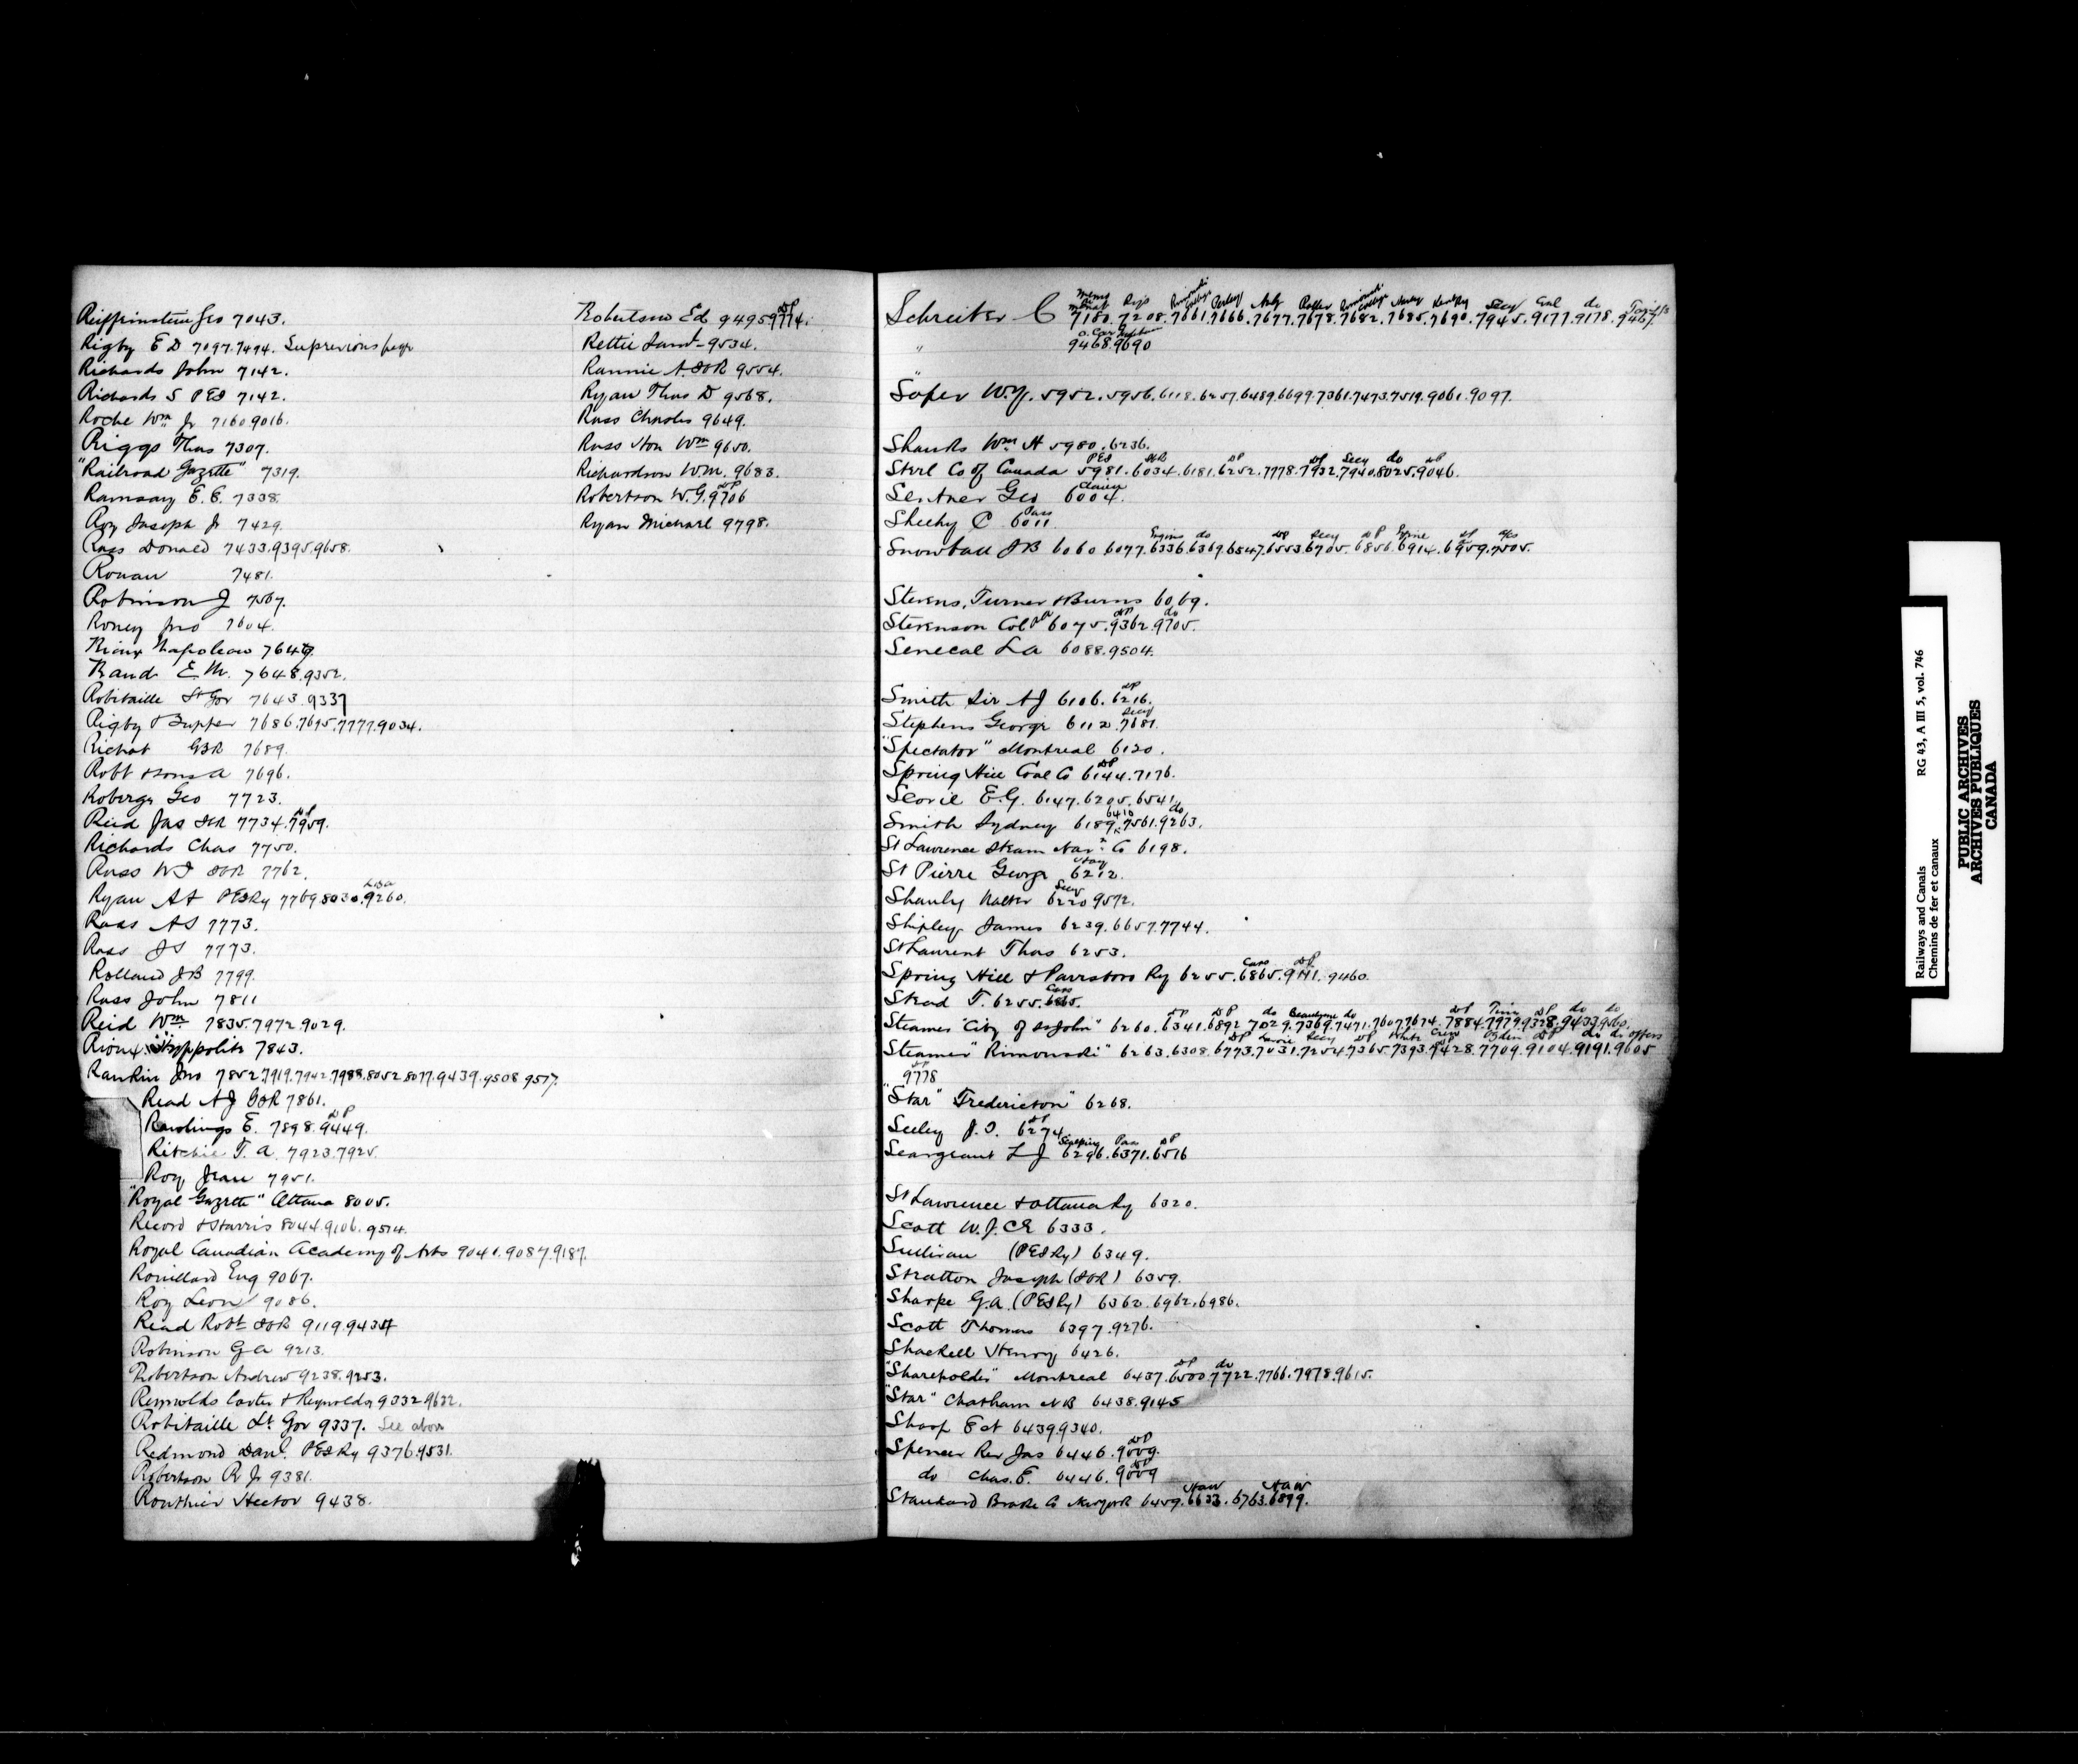 Reiffenstein Geo 7043.
Rigby E D 7097.7494. See previous page
Richards John 7142.
Richards S PEI 7142.
Roche Wm Jr 7160.9016.
Riggs Thos 7307.
"Railroad Gazette" 7319.
Ramsay E. E. 7338.
Roy Joseph Jr 7429.
Ross Donald 7433.9395.9658.
Ronan 7481.
Robinson J 7567.
Roney Jno 7604.
Rioux Napoleon 7647.
Rand E. M. 7648.9352.
Robitaille Lt Gov 7643.9337
Rigby & Tupper 7686.7695.7777.9034.
Richot 7689.
Robt 7696.
Roberge Geo 7723.
Reid Jas ICR 7734.7959. DP
Richards Chas 7750.
Ross W J ICR 7762.
Ryan A J PEIRy 7769.8030.9260.
Ross A S 7773.
Ross J S 7773.
Rolland J B 7799.
Ross John 7811
Reid Wm 7835.7972.9029.
Rioux Hyppolite 7843.
Rankin Jno 7852.7919.7942.7988.8052.8077.9439.9508.9517.
Read A J ICR 7861.
Rawlings E. 7898.9449. DP
Ritchie T. A. 7923.7925.
Roy Jean 7951.
"Royal Gazette" Ottawa 8005.
Record & Harris 8044.9106.9514.
Royal Canadian Academy of Arts 9041.9087.9187.
Rouillard Eug 9067.
Roy Leon 9086.
Read Robt ICR 9119.9434
Robinson G A 9213.
Robertson Andrew 9238.9253.
Reynolds Carter & Reynolds 9332.9622.
Robitaille Lt Gov 9337. See above
Redmond Danl. PEIRy 9376.9531.
Robertson R Jr 9381.
Routhier Hector 9438.
Robertson Ed 9495.9774. DP
Rettie Jas 9534.
Rannie A. ICR 9554.
Ryan Thos D 9568.
Ross Charles 9649.
Ross Hon Wm 9650.
Richardson Wm. 9683.
Robertson W. G. 9706 DP
Ryan Michael 9798.
Schreiber C 7180.7208.7661.7666.7677.7678.7682.7685.7690.7945.9177.9178.9467.
" 9468.9690
Soper W. Y. 5952.5956.6118.6257.6489.6699.7361.7473.7519.9061.9097.
Shanks Wm H 5980.6236.
Steel Co of Canada 5981.6034.6181.6252.7778.7932.7940.8025.9046.
Sentner Geo 6004.
Sheehy C 6011. Pass
Snowball J B 6060.6077.6336.6369.6547.6553.6705.6856.6914.6959.7505.
Stevens, Turner & Burns 6069.
Stevenson Col 6075.9362.9705.
Senecal L A 6088.9504.
Smith Sir A J 6106.6216. DP
Stephens George 6112.7681. Secy
"Spectator" Montreal 6120.
Spring Hill Coal Co 6144.7176. DP
Scovil E. G. 6147.6205.6541.
Smith Sydney 6189.6410.7561.9263.
St Lawrence Steam Navn Co 6198.
St Pierre George 6212.
Shanly Walter 6220.9572. Secy
Shipley James 6239.6657.7744.
St Laurent Thos 6253.
Spring Hill & Parrsboro Ry 6255.6865.9141.9460.
Stead T. 6255.6865. Cars
Steamer "City of St John" 6260.6341.6892.7029.7369.7471.7607.7674.7884.7979.9328.9439.9560.
Steamer "Rimouski" 6263.6308.6773.7031.7254.7365.7393.7428.7709.9104.9191.9605
9778
"Star" Fredericton" 6268.
Seeley J. O. 6274. DP
Seargeant L J 6296.6371.6516
St Lawrence & Ottawa Ry 6320.
Scott W. J. CR 6333.
Sullivan (PEIRy) 6349.
Stratton Joseph (ICR) 6359.
Sharpe G. A. (PEIRy) 6362.6962.6986.
Scott Thomas 6397.9276.
Shackell Henry 6426.
"Shareholder" Montreal 6437.6500.7722.7766.7978.9615.
"Star" Chatham NB 6438.9145
Sharp E H 6439.9340.
Spencer Rev Jas 6446.9009. DP
do Chas. E. 6446.9009 DP
Standard Brake Co New York 6459.6633.6763.6899.
Railways and Canals
Chemins de fer et canaux
RG 43, A III 5, vol. 746
PUBLIC ARCHIVES
ARCHIVES PUBLIQUES
CANADA